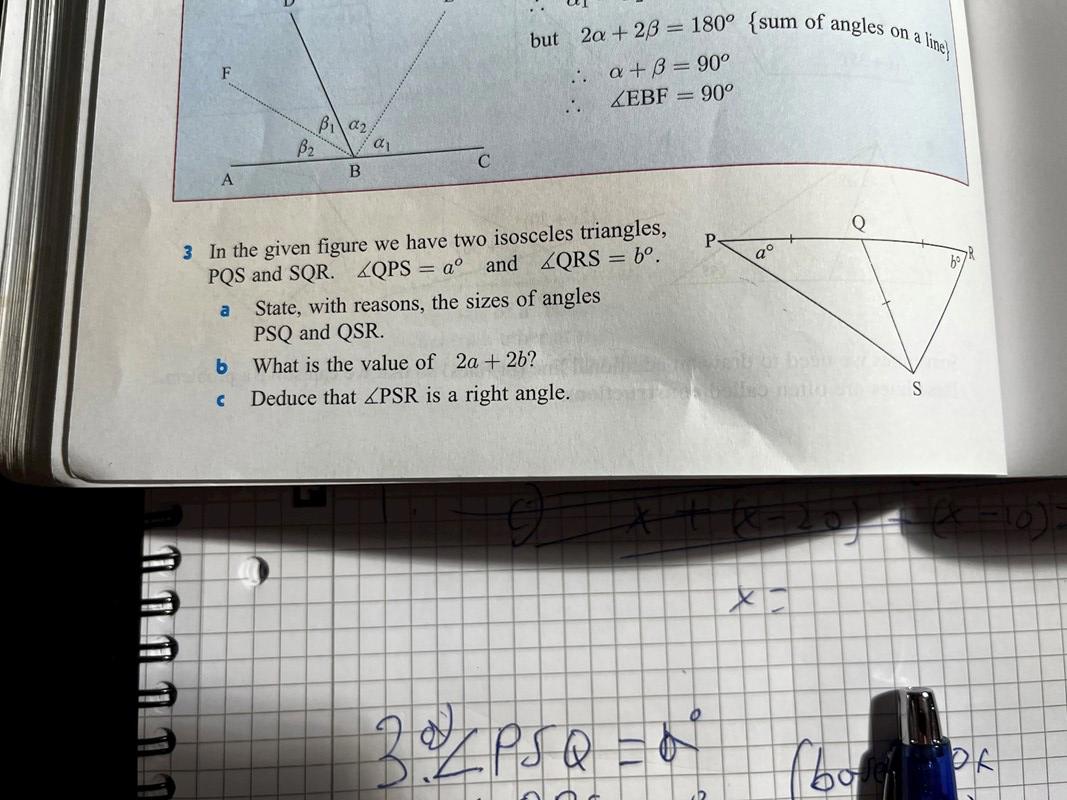 D
∴ α₁
but 2α + 2β = 180° {sum of angles on a line}
∴ α + β = 90°
∴ ∡EBF = 90°
F
β₁ α₂
β₂ α₁
A B C
3 In the given figure we have two isosceles triangles,
PQS and SQR. ∡QPS = a° and ∡QRS = b°.
a State, with reasons, the sizes of angles
PSQ and QSR.
b What is the value of 2a + 2b?
c Deduce that ∡PSR is a right angle.
Q
P a° b° R
S
c) x + (x-20) + (x-10) =
x =
3. a) ∠PSQ = a°